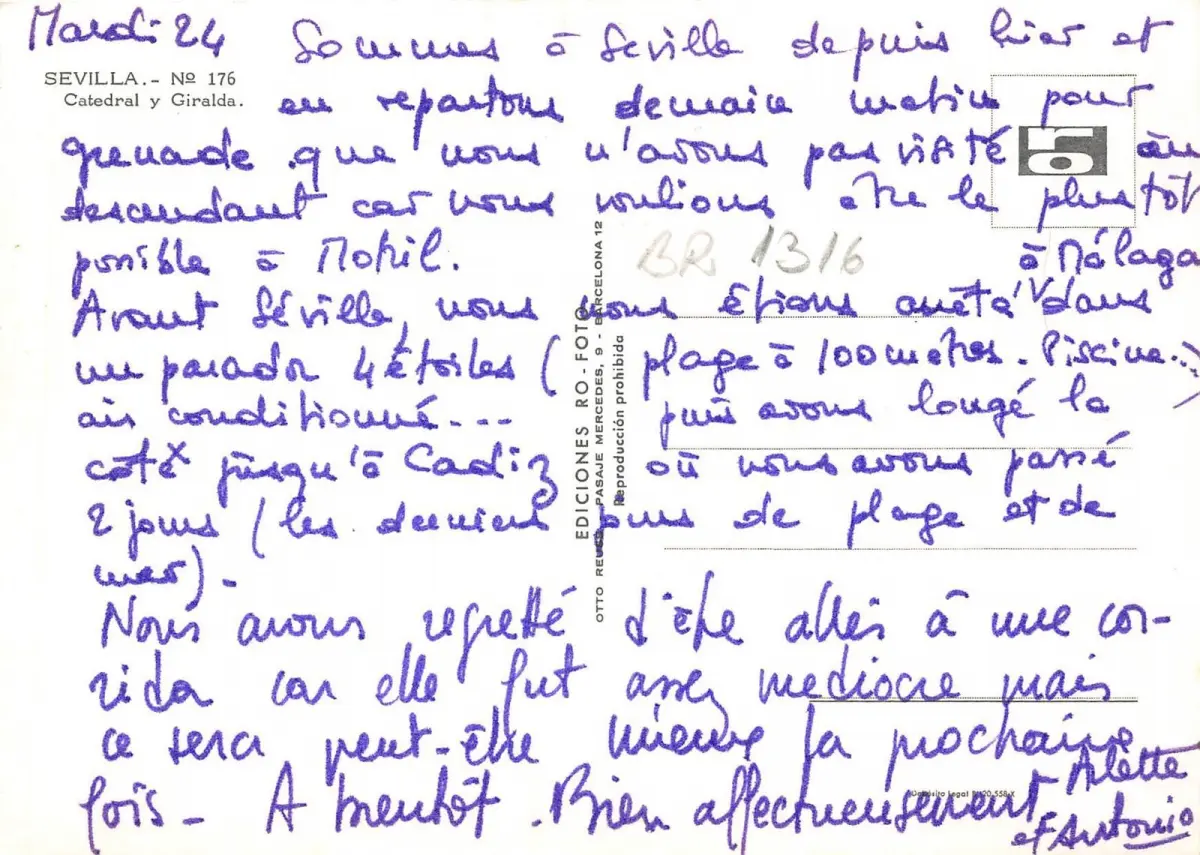 Mardi 24
Sommes à Séville depuis hier et
SEVILLA.- Nº 176
Catedral y Giralda.
en repartons demain matin pour
grenade que nous n'avons pas visité en
descendant car nous voulions être le plus tôt
possible à Motril.
Avant Séville, nous nous étions arrêté à Málaga dans
un parador 4 étoiles (plage à 100 mètres. Piscine..
air conditionné...)
puis avons longé la
coté jusqu'à Cadiz où nous avons passé
2 jours (les derniers jours de plage et de
mer).
Nous avons regretté d'être allés à une cor-
rida car elle fut assez mediocre mais
ce sera peut-être mieux la prochaine
fois - A bientôt. Bien affectueusement
Arlette
et Antonio
BR 1316
EDICIONES RO - FOTO
OTTO REUSS PASAJE MERCEDES, 9 - BARCELONA 12
Reproducción prohibida
ro
Depósito Legal B. 20.558-X